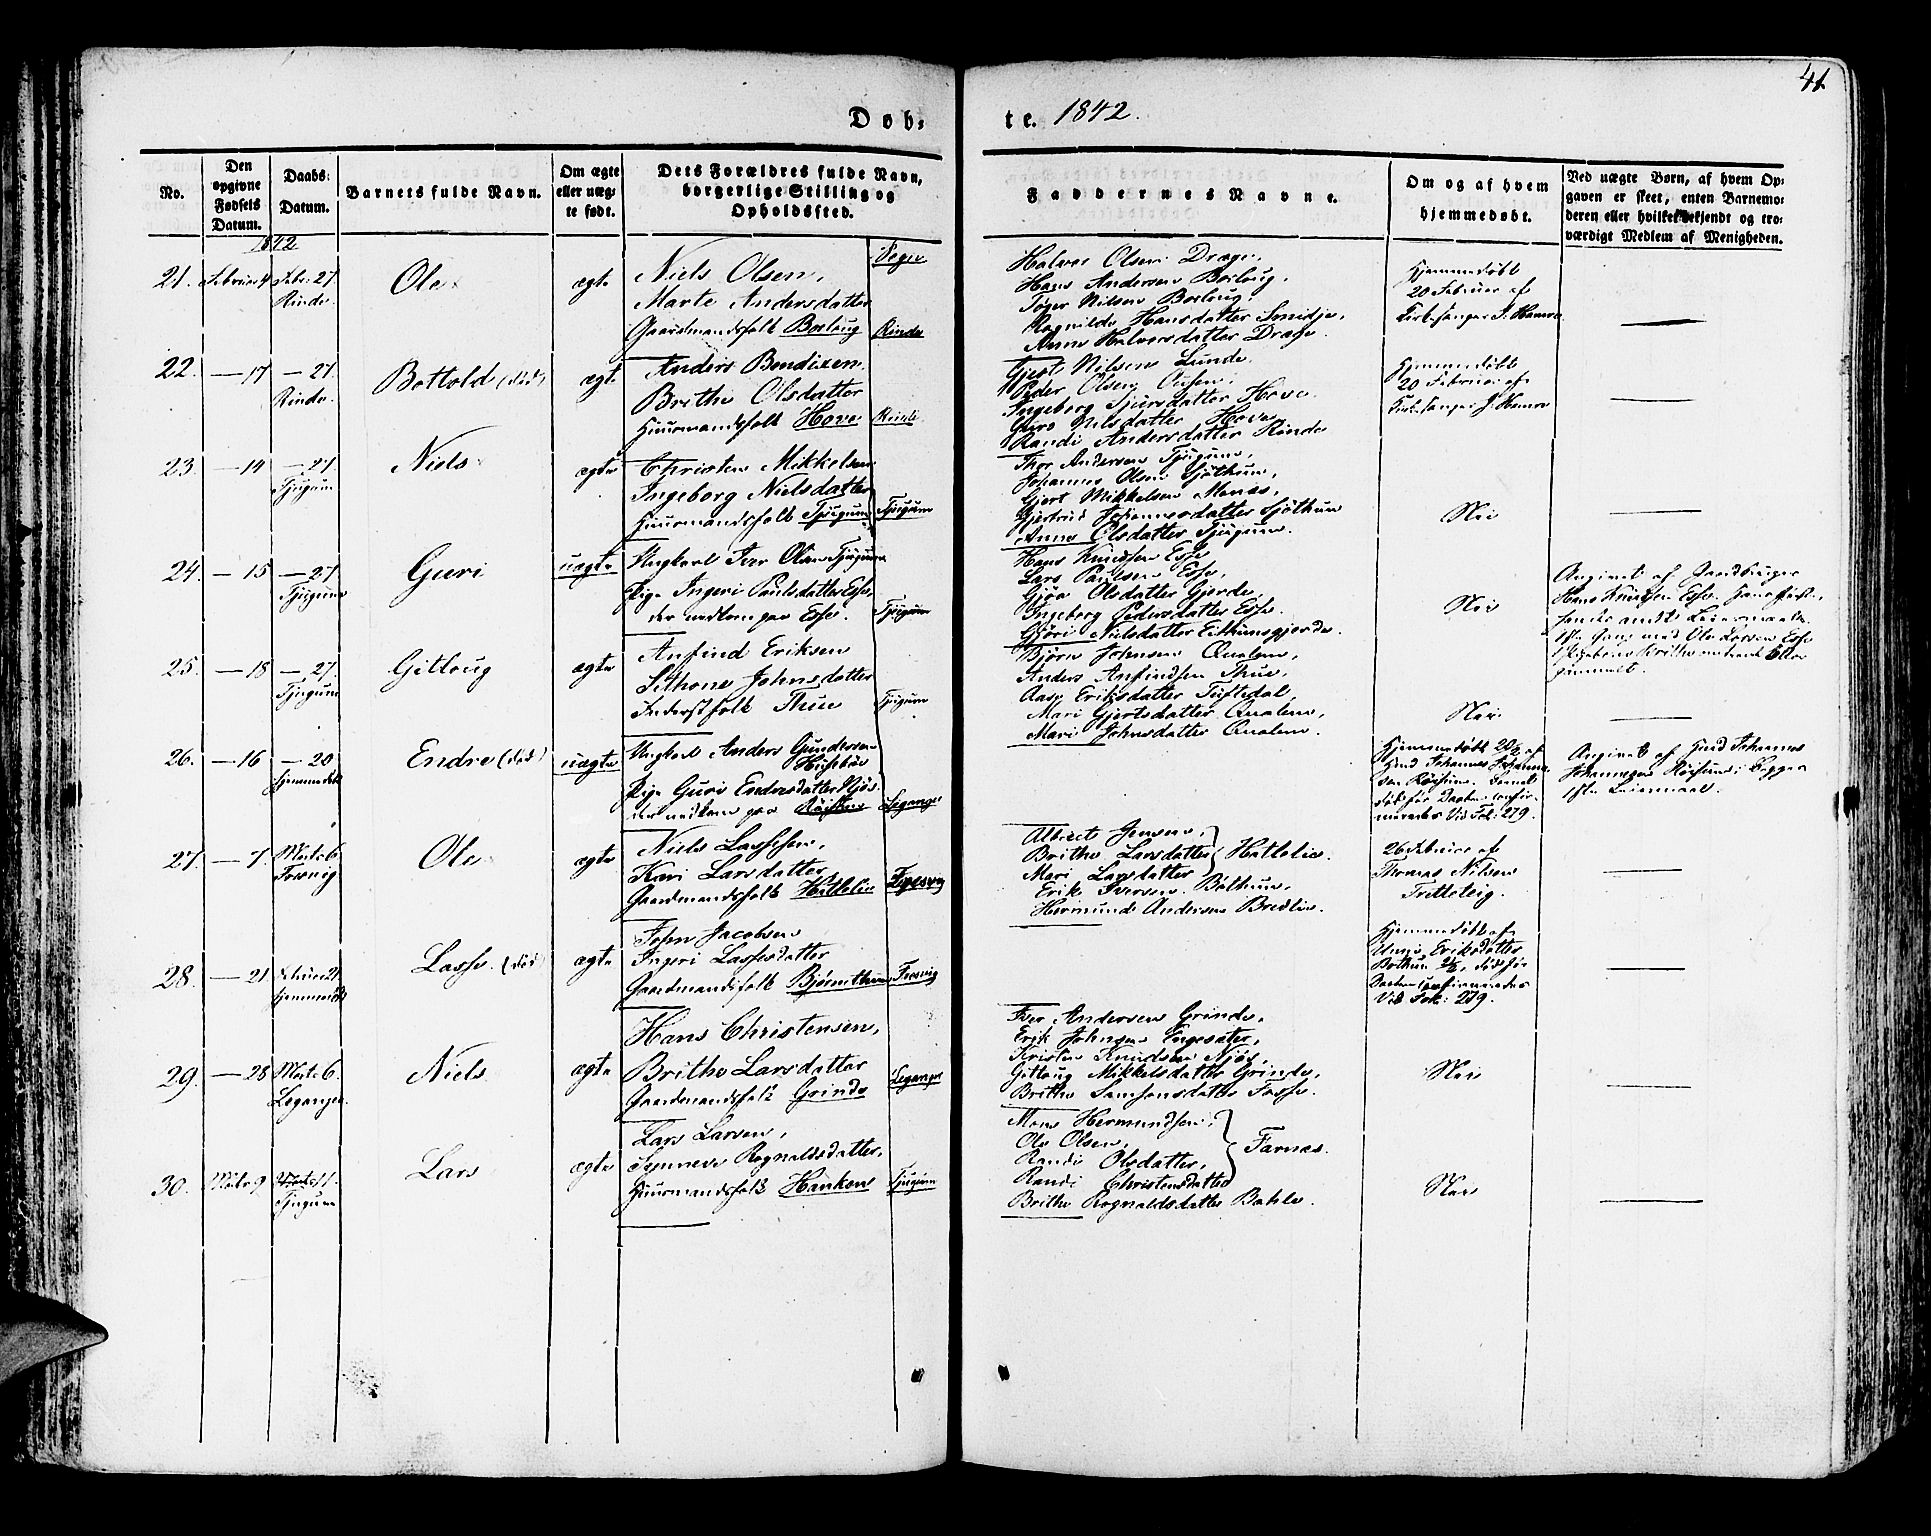 41
Døb-
te. 1842.
No.
Den opgivne Fødsels Datum.
Daabs-Datum.
Barnets fulde Navn.
Om ægte eller uægte født.
Dets Forældres fulde Navn, borgerlige Stilling og Opholdssted.
Faddernes Navne.
Om og af hvem hjemmedøbt.
Ved uægte Børn, af hvem Opgaven er skeet, enten Barnemoderen eller hvilket bekjendt og troværdigt Medlem af Menigheden.
1842
21. Februar 4 Febr. 27 Rinde.
Ole
ægte
Niels Olsen,
Marte Andersdatter
Gaardmandsfolk Borlaug
Rinde
Halvor Olsen Drage,
Hans Andersen Borlaug,
Tøger Nilsen Borlaug,
Ragnilde Hansdatter Smidje,
Anna Halvorsdatter Drage.
Hjemmedøbt
20 Februar af
Kirkesanger J. Hamre
22. — 17 — 27. Rinde.
Bottold (død)
ægte
Anders Bendixen
Brithe Olsdatter
Huusmandsfolk Hove
Rinde
Gjert Nilsen Lunde,
Peder Olsen
Ingeborg Sjursdatter Hove.
Guro Nilsdatter Hove
Randi Andersdatter Rinde
Hjemmedøbt
20 Februar af
Kirkesanger J. Hamre
23. — 14 — 27. Tjugum
Niels
ægte
Christen Mikkelsen
Ingeborg Nielsdatter
Huusmandsfolk Tjugum
Tjugum
Thor Andersen Tjugum,
Johannes Olsen Sjøthun,
Gjert Mikkelsen Menes,
Gjertrud Johannesdatter Sjøthun
Anna Olsdatter Tjugum.
Nei
24. — 15 — 27 Tjugum
Guri
uægte
Ungkarl Iver Olsen Tjugum
Pige Ingeri Paulsdatter Esse,
der nedkom paa Esse.
Tjugum
Hans Knudsen Esse
Lars Paulsen Esse,
Gjøa Olsdatter Gjerde,
Ingeborg Pedersdatter Esse.
Gjøri Nielsdatter Eithunsgjerde.
Nei
Angivet af
Hans Knudsen Esse.
25. — 18 — 27. Tjugum
Gitloug
ægte
Anfind Eriksen
Sithone Johnsdatter
Inderstfolk Thue
Tjugum
Bjørn Johnsen Qualem,
Anders Anfindsen Thue,
Aase Eriksdatter Tuftedal,
Mari Gjertsdatter Qualem,
Mari Johnsdatter Qualem.
Nei
26. — 16 — 20 hjemmedøbt
Endre (død)
uægte
Ungkarl Anders Gundersen Husebøe
Pige Guri Endresdatter Njøs
der nedkom paa
Leganger
Hjemmedøbt 20/2 af
Vid Fol: 279.
Angivet af
Johannes
Leiermaal.
27. — 7 Marts 6 Fresvig
Ole
ægte
Niels Lassesen,
Kari Larsdatter
Gaardmandsfolk Hatlelie
Fresvig
Albret Jensen,
Brithe Larsdatter } Hatlelie.
Mari Larsdatter
Erik Iversen Bøthun,
Hermunde Andersen Bredlie.
26 Februar af
Thomas Nilsen
Tretteteig.
28. — 21 hjemmedøbt
Lasse. (død)
ægte
John Jacobsen
Ingeri Lassesdatter
Gaardmandsfolk Bjørnethun
Fresvig
Hjemmedøbt af
Unni Eriksdatter
Bøthun
Vid Fol: 279.
29. — 28 Marts 6. Leganger.
Niels
ægte
Hans Christensen,
Brithe Larsdatter
Gaardmandsfolk Grinde
Leganger
Iver Andersen Grinde,
Erik Johnsen Engesæter,
Kristen Knudsen Njøs,
Gitloug Mikkelsdatter Grinde,
Brithe Samsonsdatter Fosse.
Nei
30. Marts 9 Tjugum
Lars
ægte
Lars Larsen,
Synneve Rognaldsdatter,
Huusmandsfolk Hanken
Tjugum
Mons Hermundsen,
Ole Olsen,
Randi Olsdatter, } Farnæs.
Randi Christensdatter
Brithe Rognaldsdatter Bahle.
Nei